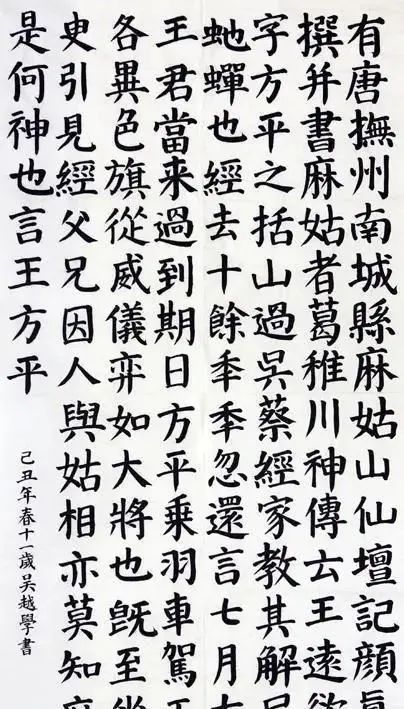 有唐撫州南城縣麻姑山仙壇記顏眞
撰并書麻姑者葛稚川神傳云王遠欲
字方平之括山過吳蔡經家教其解
虵蟬也經去十餘秊秊忽還言七月
王君當来過到期日方平乗羽車駕
各異色旗從威儀弈如大將也旣至坐
臾引見經父兄因人與姑相亦莫知
是何神也言王方平
己丑年春十一歲吳越學書